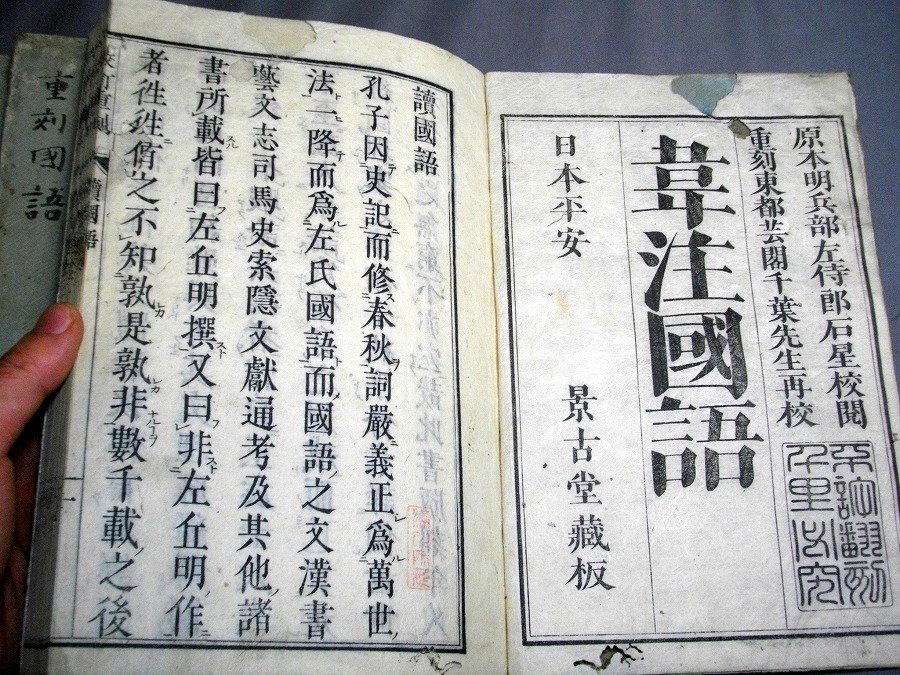 原本明兵部左侍郎石星校閲
重刻東都芸閣千葉先生再校
不許翻刻
千里必究
韋注國語
日本平安 景古堂藏板
讀國語
孔子因史記而修春秋詞嚴義正爲萬世
法一降而爲左氏國語而國語之文漢書
藝文志司馬史索隱文獻通考及其他諸
書所載皆曰左丘明撰又曰非左丘明作
者徃徃侑之不知孰是孰非數千載之後
重刻国語